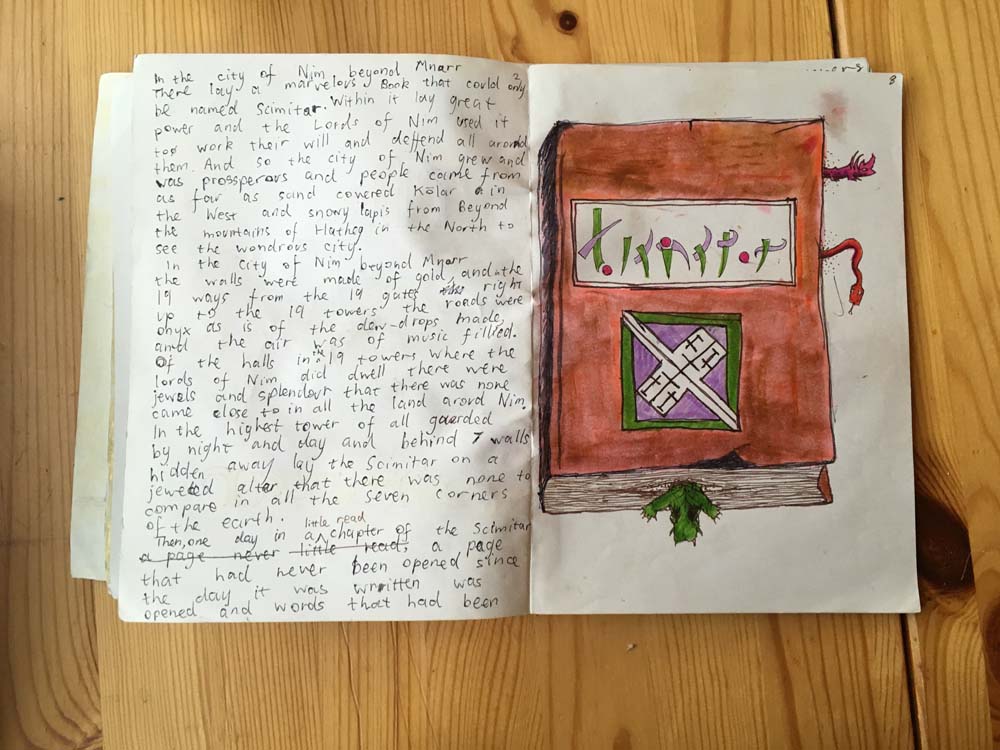 In the city of Nim beyond Mnarr
There lay a marvelous Book that could only
be named Scimitar. Within it lay great
power and the Lords of Nim used it
too work their will and deffend all around
them. And so the city of Nim grew and
was prossperous and people came from
as far as sand covered Kölar in
the West and snowy lapis from Beyond
the mountains of Hatheg in the North to
see the wondrous city.
In the city of Nim beyond Mnarr
the walls were made of gold, and the
19 ways from the 19 gates right
up to the 19 towers the roads were
onyx as is of the dew-drops made,
and the air was of music filled.
Of the halls in the 19 towers where the
lords of Nim did dwell there were
jewels and splendour that there was none
came close to in all the land aroud Nim.
In the highest tower of all guarded
by night and day and behind 7 walls
hidden away lay the Scimitar on a
jeweled alter that there was none to
compare in all the seven corners
of the earth.
Then, one day in a little read chapter of the Scimitar
a page never little read, a page
that had never been opened since
the day it was wrritten was
opened and words that had been
8